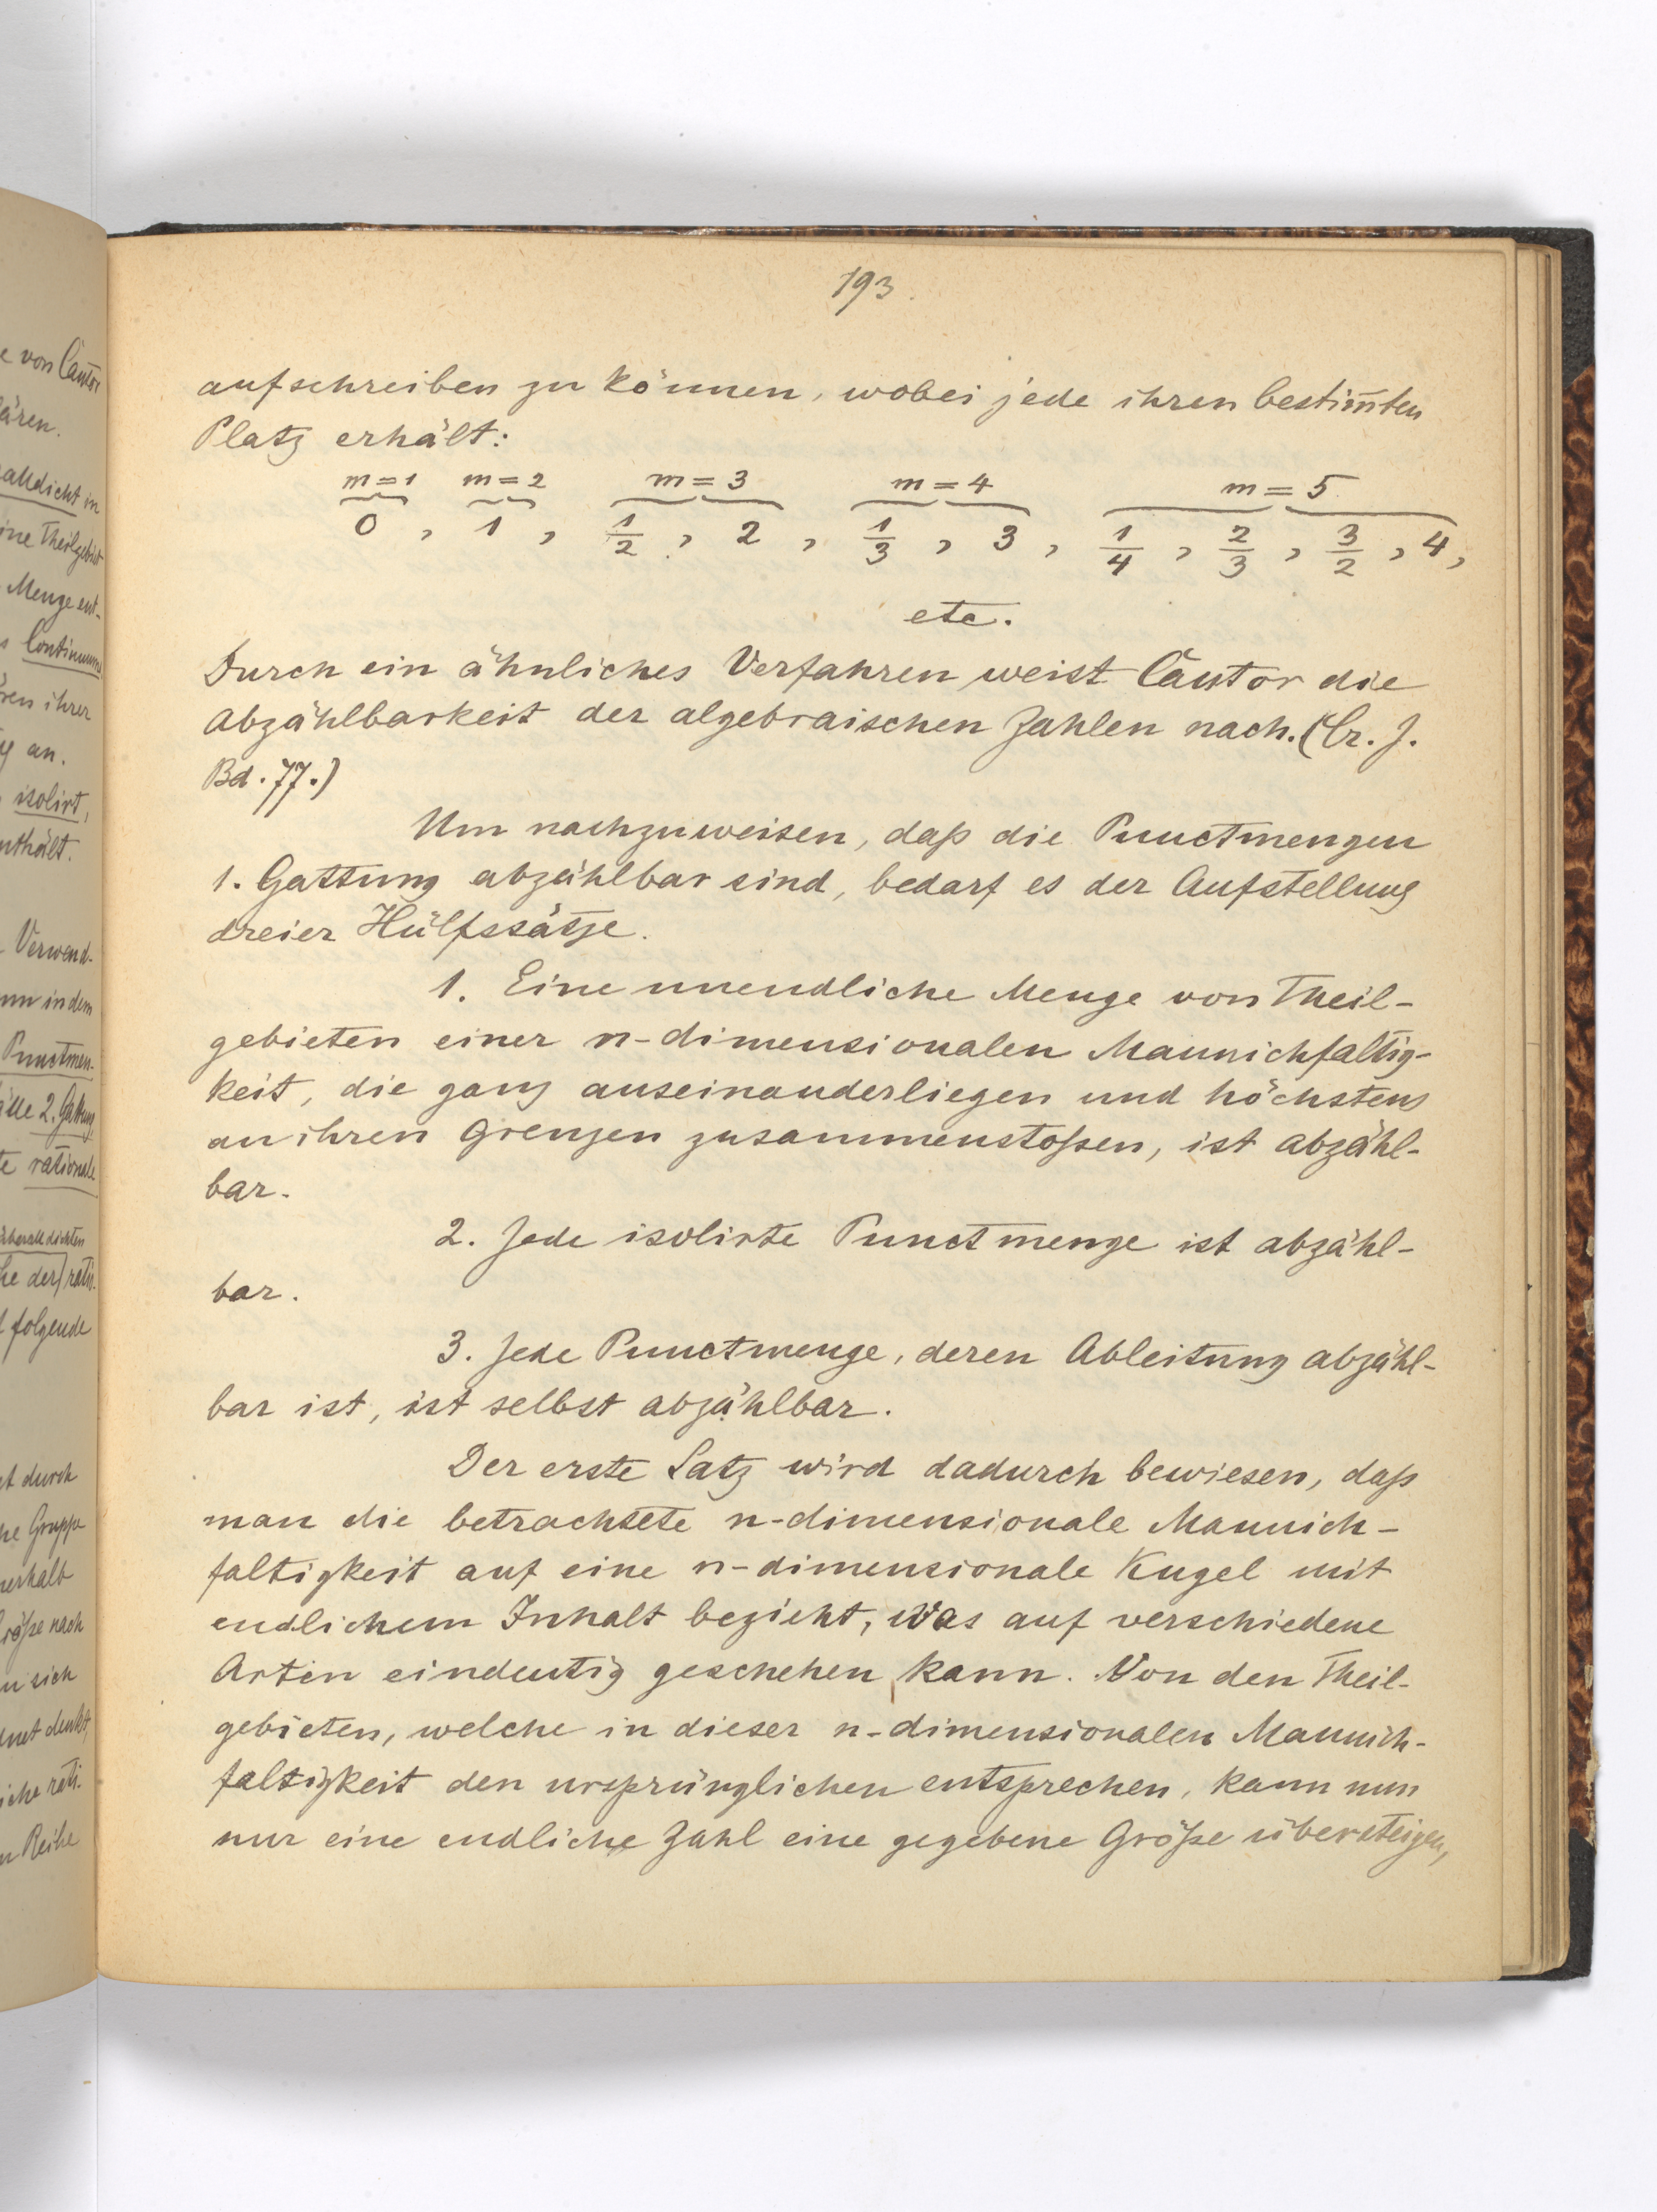 193.
aufschreiben zu können, wobei jede ihren bestim̅ten
Platz erhält:
m=1 m=2 m=3 m=4 m=5
0, 1, 1/2, 2, 1/3, 3, 1/4, 2/3, 3/2, 4,
etc.
Durch ein ähnliches Verfahren weist Cantor die
Abzählbarkeit der algebraischen Zahlen nach. (Cr. J.
Bd. 77.)
Um nachzuweisen, daß die Punctmengen
1. Gattung abzählbar sind, bedarf es der Aufstellung
dreier Hülfssätze.
1. Eine unendliche Menge von Theil-
gebieten einer n-dimensionalen Mannichfaltig-
keit, die ganz auseinanderliegen und höchstens
an ihren Grenzen zusammenstoßen, ist abzähl-
bar.
2. Jede isolirte Punctmenge ist abzähl-
bar.
3. Jede Punctmenge, deren Ableitung abzähl-
bar ist, ist selbst abzählbar.
Der erste Satz wird dadurch bewiesen, daß
man die betrachtete n-dimensionale Mannich-
faltigkeit auf eine n-dimensionale Kugel mit
endlichem Inhalt bezieht, was auf verschiedene
Arten eindeutig geschehen kann. Von den Theil-
gebieten, welche in dieser n-dimensionalen Mannich-
faltigkeit den ursprünglichen entsprechen, kann nun
nur eine endliche Zahl eine gegebene Größe übersteigen,
e von Cantor
ären.
alldicht in
ine Theilgebiet
Menge ent-
s Continuums
ren ihrer
an.
isolirt,
nthält.
Verwend-
nn in dem
Punctmen-
2. Gattung
te rationale
überalldichten
he der ratio-
folgende
t durch
he Gruppe
nerhalb
Größe nach
n sich
dnet denkt,
iche rati-
n Reihe